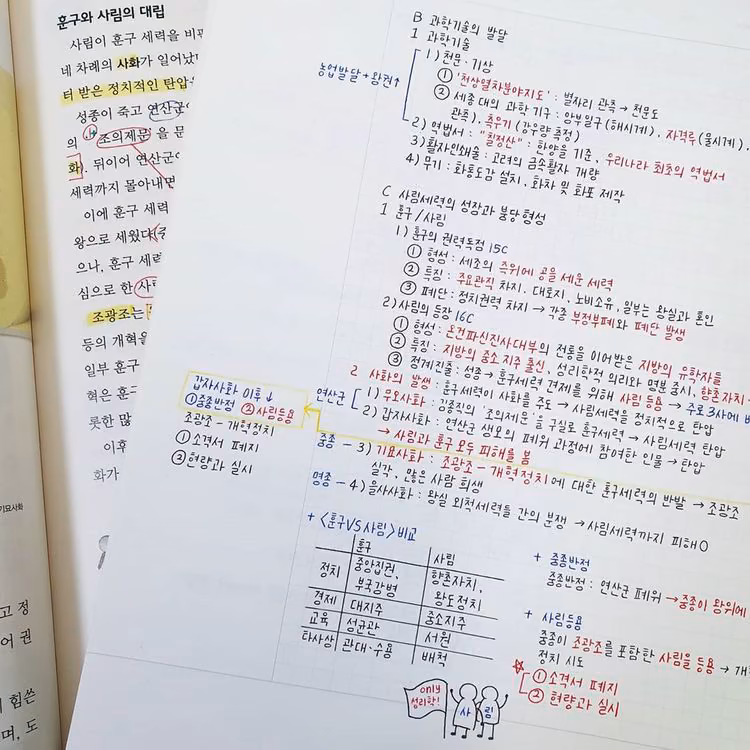 훈구와 사림의 대립
사림이 훈구 세력을 비판
네 차례의 사화가 일어났
터 받은 정치적인 탄압
성종이 죽고 연산군
의 조의제문을 문
화. 뒤이어 연산군
세력까지 몰아내면
이에 훈구 세력
왕으로 세웠다(주
으나, 훈구 세력
심으로 한 사
조광조는
등의 개혁을
일부 훈구
혁은 훈구
롯한 많
이후
화가
기묘사화
고 정
어 권
힘쓴
며, 도
B 과학기술의 발달
1 과학기술
농업발달+왕권↑
1) 천문·기상
① '천상열차분야지도' : 별자리 관측 → 천문도
② 세종 대의 과학 기구 : 앙부일구(해시계), 자격루(물시계),
관측), 측우기(강우량 측정)
2) 역법서 : "칠정산" : 한양을 기준, 우리나라 최초의 역법서
3) 활자인쇄술 : 고려의 금속활자 개량
4) 무기 : 화통도감 설치, 화차 및 화포 제작
C 사림세력의 성장과 붕당 형성
1 훈구/사림
1) 훈구의 권력독점 15C
① 형성 : 세조의 즉위에 공을 세운 세력
② 특징 : 주요관직 차지, 대토지, 노비소유, 일부는 왕실과 혼인
③ 폐단 : 정치권력 차지 → 각종 부정부패와 폐단 발생
2) 사림의 등장 16C
① 형성 : 온건파신진사대부의 전통을 이어받은 지방의 유학자들
② 특징 : 지방의 중소 지주 출신, 성리학적 의리와 명분 중시, 향촌자치
③ 정계진출 : 성종 → 훈구세력 견제를 위해 사림 등용 → 주로 3사에
2 사화의 발생 : 훈구세력이 사화를 주도 → 사림세력을 정치적으로 탄압
연산군
1) 무오사화 : 김종직의 '조의제문'을 구실로 훈구세력 → 사림세력 탄압
2) 갑자사화 : 연산군 생모의 폐위 과정에 참여한 인물 → 탄압
→ 사림과 훈구 모두 피해를 봄
중종 - 3) 기묘사화 : 조광조 - 개혁정치에 대한 훈구세력의 반발 → 조광조
실각, 많은 사람 희생
명종 - 4) 을사사화 : 왕실 외척세력들 간의 분쟁 → 사림세력까지 피해O
갑자사화 이후 ↓
①중종반정 ②사림등용
조광조 - 개혁정치
① 소격서 폐지
② 현량과 실시
+ <훈구VS사림> 비교
훈구 사림
정치 중앙집권, 부국강병 향촌자치, 왕도정치
경제 대지주 중소지주
교육 성균관 서원
타사상 관대·수용 배척
+ 중종반정
중종반정 : 연산군 폐위 → 중종이 왕위에
+ 사림등용
중종이 조광조를 포함한 사림을 등용 → 개
정치 시도
① 소격서 폐지
② 현량과 실시
only
성리학!
사 림